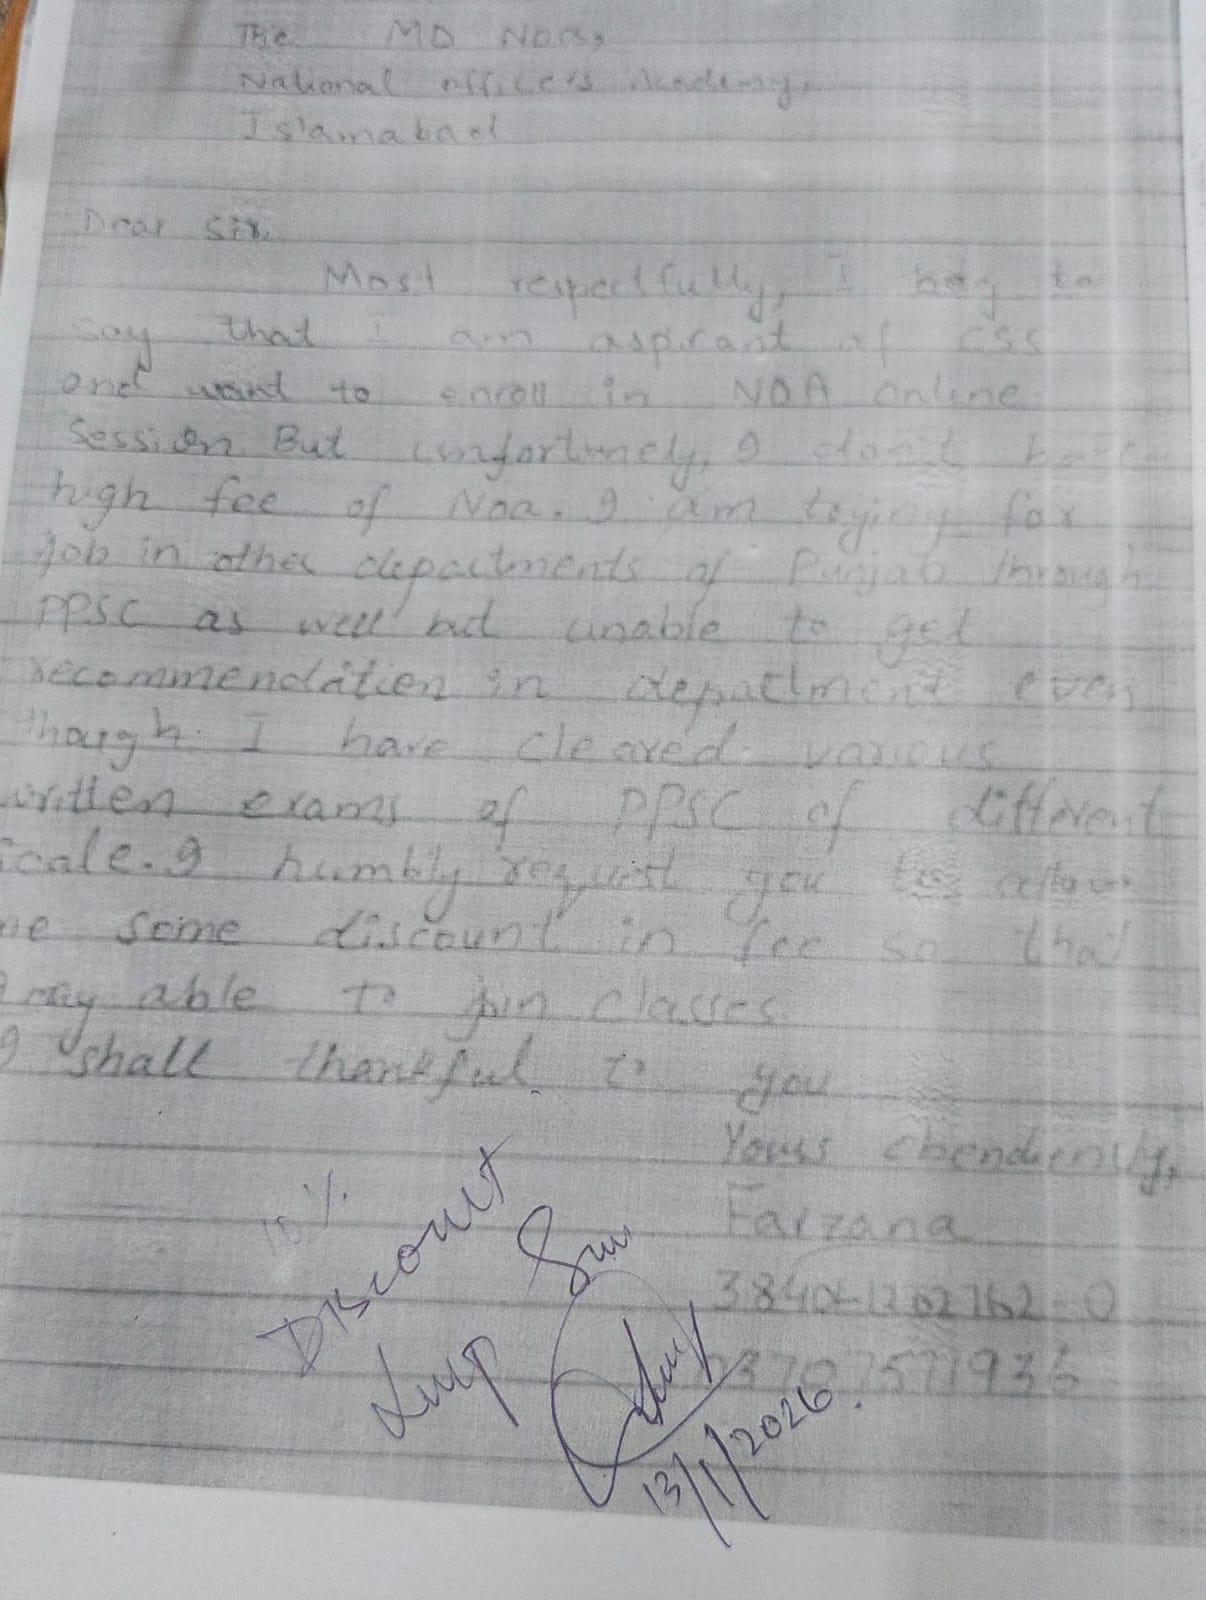 The MD Noa,
National officers Academy,
Islamabad
Dear Sir,
Most respectfully, I beg to
say that I am aspirant of CSS
and want to enroll in NOA online
Session. But unfortunely, I don't have
high fee of Noa. I am trying for
job in other departments of Punjab through
PPSC as well but unable to get
recommendation in department even
though I have cleared various
written exams of PPSC of different
scale. I humbly request you to allow
me some discount in fee so that
I may able to join classes.
I shall thankful to you
Yours obendiently,
Farzana
10%
Discount
Lump Sum
13/1/2026.